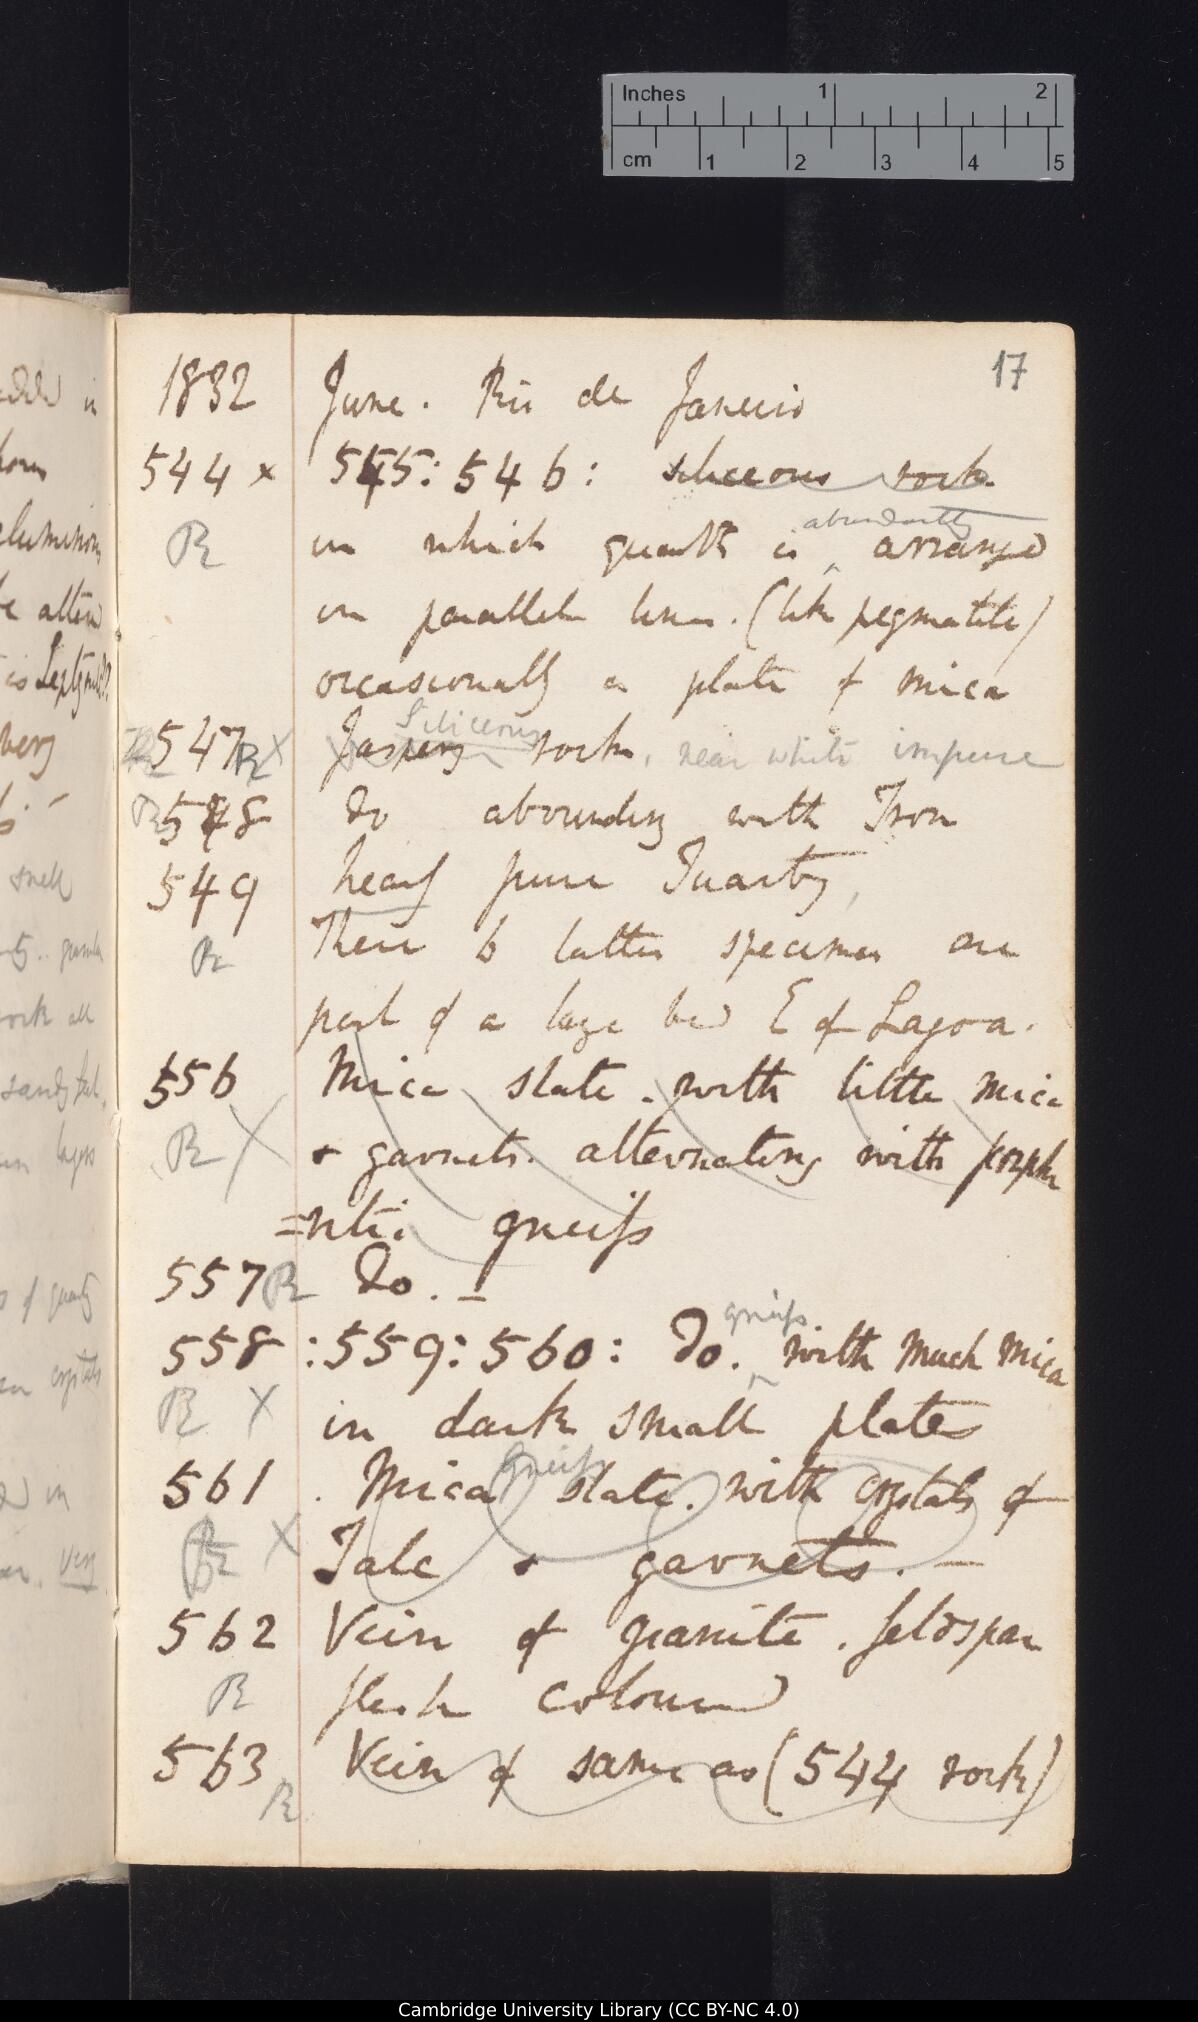 Inches 1 2
cm 1 2 3 4 5
17
1832 June. Rio de Janeiro
544 x 545: 546: siliceous rock
R in which quartz is abundantly arranged
in parallel lines. (like pegmatite)
occasionally a plate of mica
R 547 R X Jaspery Siliceous rock, near white impure
R 548 Do abounding with Iron
549 nearly pure Quartz,
R These 6 latter specimens are
part of a large bed E of Lagoa.
556 Mica slate. with little mica
R X + garnets. alternating with porphy
=ritic gneiss
557 R Do. —
558 : 559: 560: Do. gneiss. with much mica
R X in dark small plates
561 . Mica Gneiss slate. with crystals of
R X Talc + garnets. —
562 Vein of granite. feldspar
R flesh coloured
563 Vein of same as (544 rock)
R
Cambridge University Library (CC BY-NC 4.0)